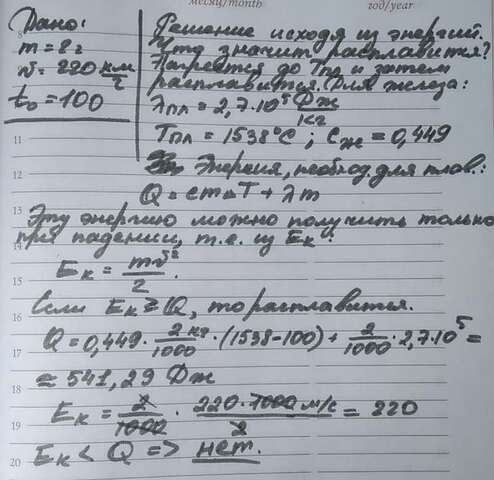 месяц/month
год/year
Дано:
m = 2 г
v = 220 км/г
t₀ = 100
Решение исходя из энергий.
Что значит расплавится?
Нагреется до Тпл и затем
расплавится. Для железа:
λпл = 2,7·10⁵ Дж/кг
Тпл = 1538°С ; Сж = 0,449
Энергия, необход. для плав.:
Q = cm△T + λm
Эту энергию можно получить только
при падении, т.е. из Eк:
Eк = mv²/2.
Если Eк ≥ Q, то расплавится.
Q = 0,449 · 2 кг/1000 · (1538-100) + 2/1000 · 2,7·10⁵ =
≃ 541,29 Дж
Eк = 2/1000 · 220·1000 м/с/2 = 220
Eк < Q => нет.
8
11
12
13
14
15
16
17
18
19
20